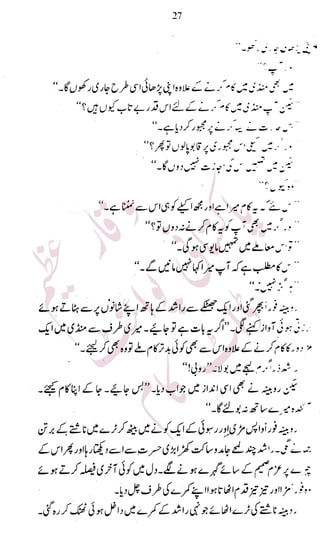 27
اپنی پڑھائی جاری رکھو۔"
اور آپ؟"
میں بھی منڈی میں کام کرنے کے علاوہ اپنی پڑھائی اسی طرح جاری رکھوں گا۔"
لیکن آپ منڈی میں کام کرنے کے لئے اس قدر بے تاب کیوں ہیں؟"
نے یہ کرنے پر مجبور کر دیا ہے۔"
اور اگر میں اس مجبوری پر قابو پا لوں تو پھر؟"
لیکن میں تمہیں اس کی اجازت نہیں دوں گا۔"
وہ کیوں؟"
اس لئے کہ یہ کام میرا ہے اور مجھ اکیلے کو ہی اس سے نمٹنا ہے۔"
اور اگر میں بھی آپ کو یہ کام کرنے نہ دوں تو؟"
تو اس معاملے میں تمہیں مایوسی ہوگی۔"
اس کا مطلب ہے کہ آپ میرا کہا نہیں مانیں گے۔"
ہرگز نہیں۔"
روبینہ فوراً بپھر گئی اور ایک جھٹکے سے راشد کے ہاتھ اپنے شانوں پر سے ہٹاتے ہوئے
ہوئی آواز کہنے لگی۔ "اگر یہ بات ہے تو جائیے۔ میری طرف سے منڈی میں ایک
مزدور کا کام کرنے کے علاوہ اس سے بھی کوئی بدتر کام ملے تو وہ بھی کر لیجئے۔"
راشد نرم لہجے میں بولا: "روبی!"
لیکن روبینہ نے بھی اسی انداز میں جواب دیا۔ "بس جائیے۔ جا کے اپنا کام کیجئے۔
آئندہ میرے ساتھ نہ بولئے گا۔"
روبینہ فوراً واپس مڑی اور رسوئی کے ایک کونے میں بیٹھ کر ٹرے میں ناشتے کے برتن
جمانے لگی۔ راشد چند لمحے جامد و ساکت کھڑا بڑی حسرت سے اسے دیکھتا رہا اور پھر اس کے
چہرے پر عزم صمیم کے سائے گہرے ہونے لگے۔ دل میں کوئی آخری فیصلہ کرتے ہوئے
وہ فوراً مڑا اور تیز تیز قدم اٹھاتا ہوا اپنے کمرے کی طرف چل دیا۔
روبینہ ناشتے کی ٹرے اٹھائے جونہی راشد کے کمرے میں داخل ہوئی ٹھٹک کر رہ گئی۔